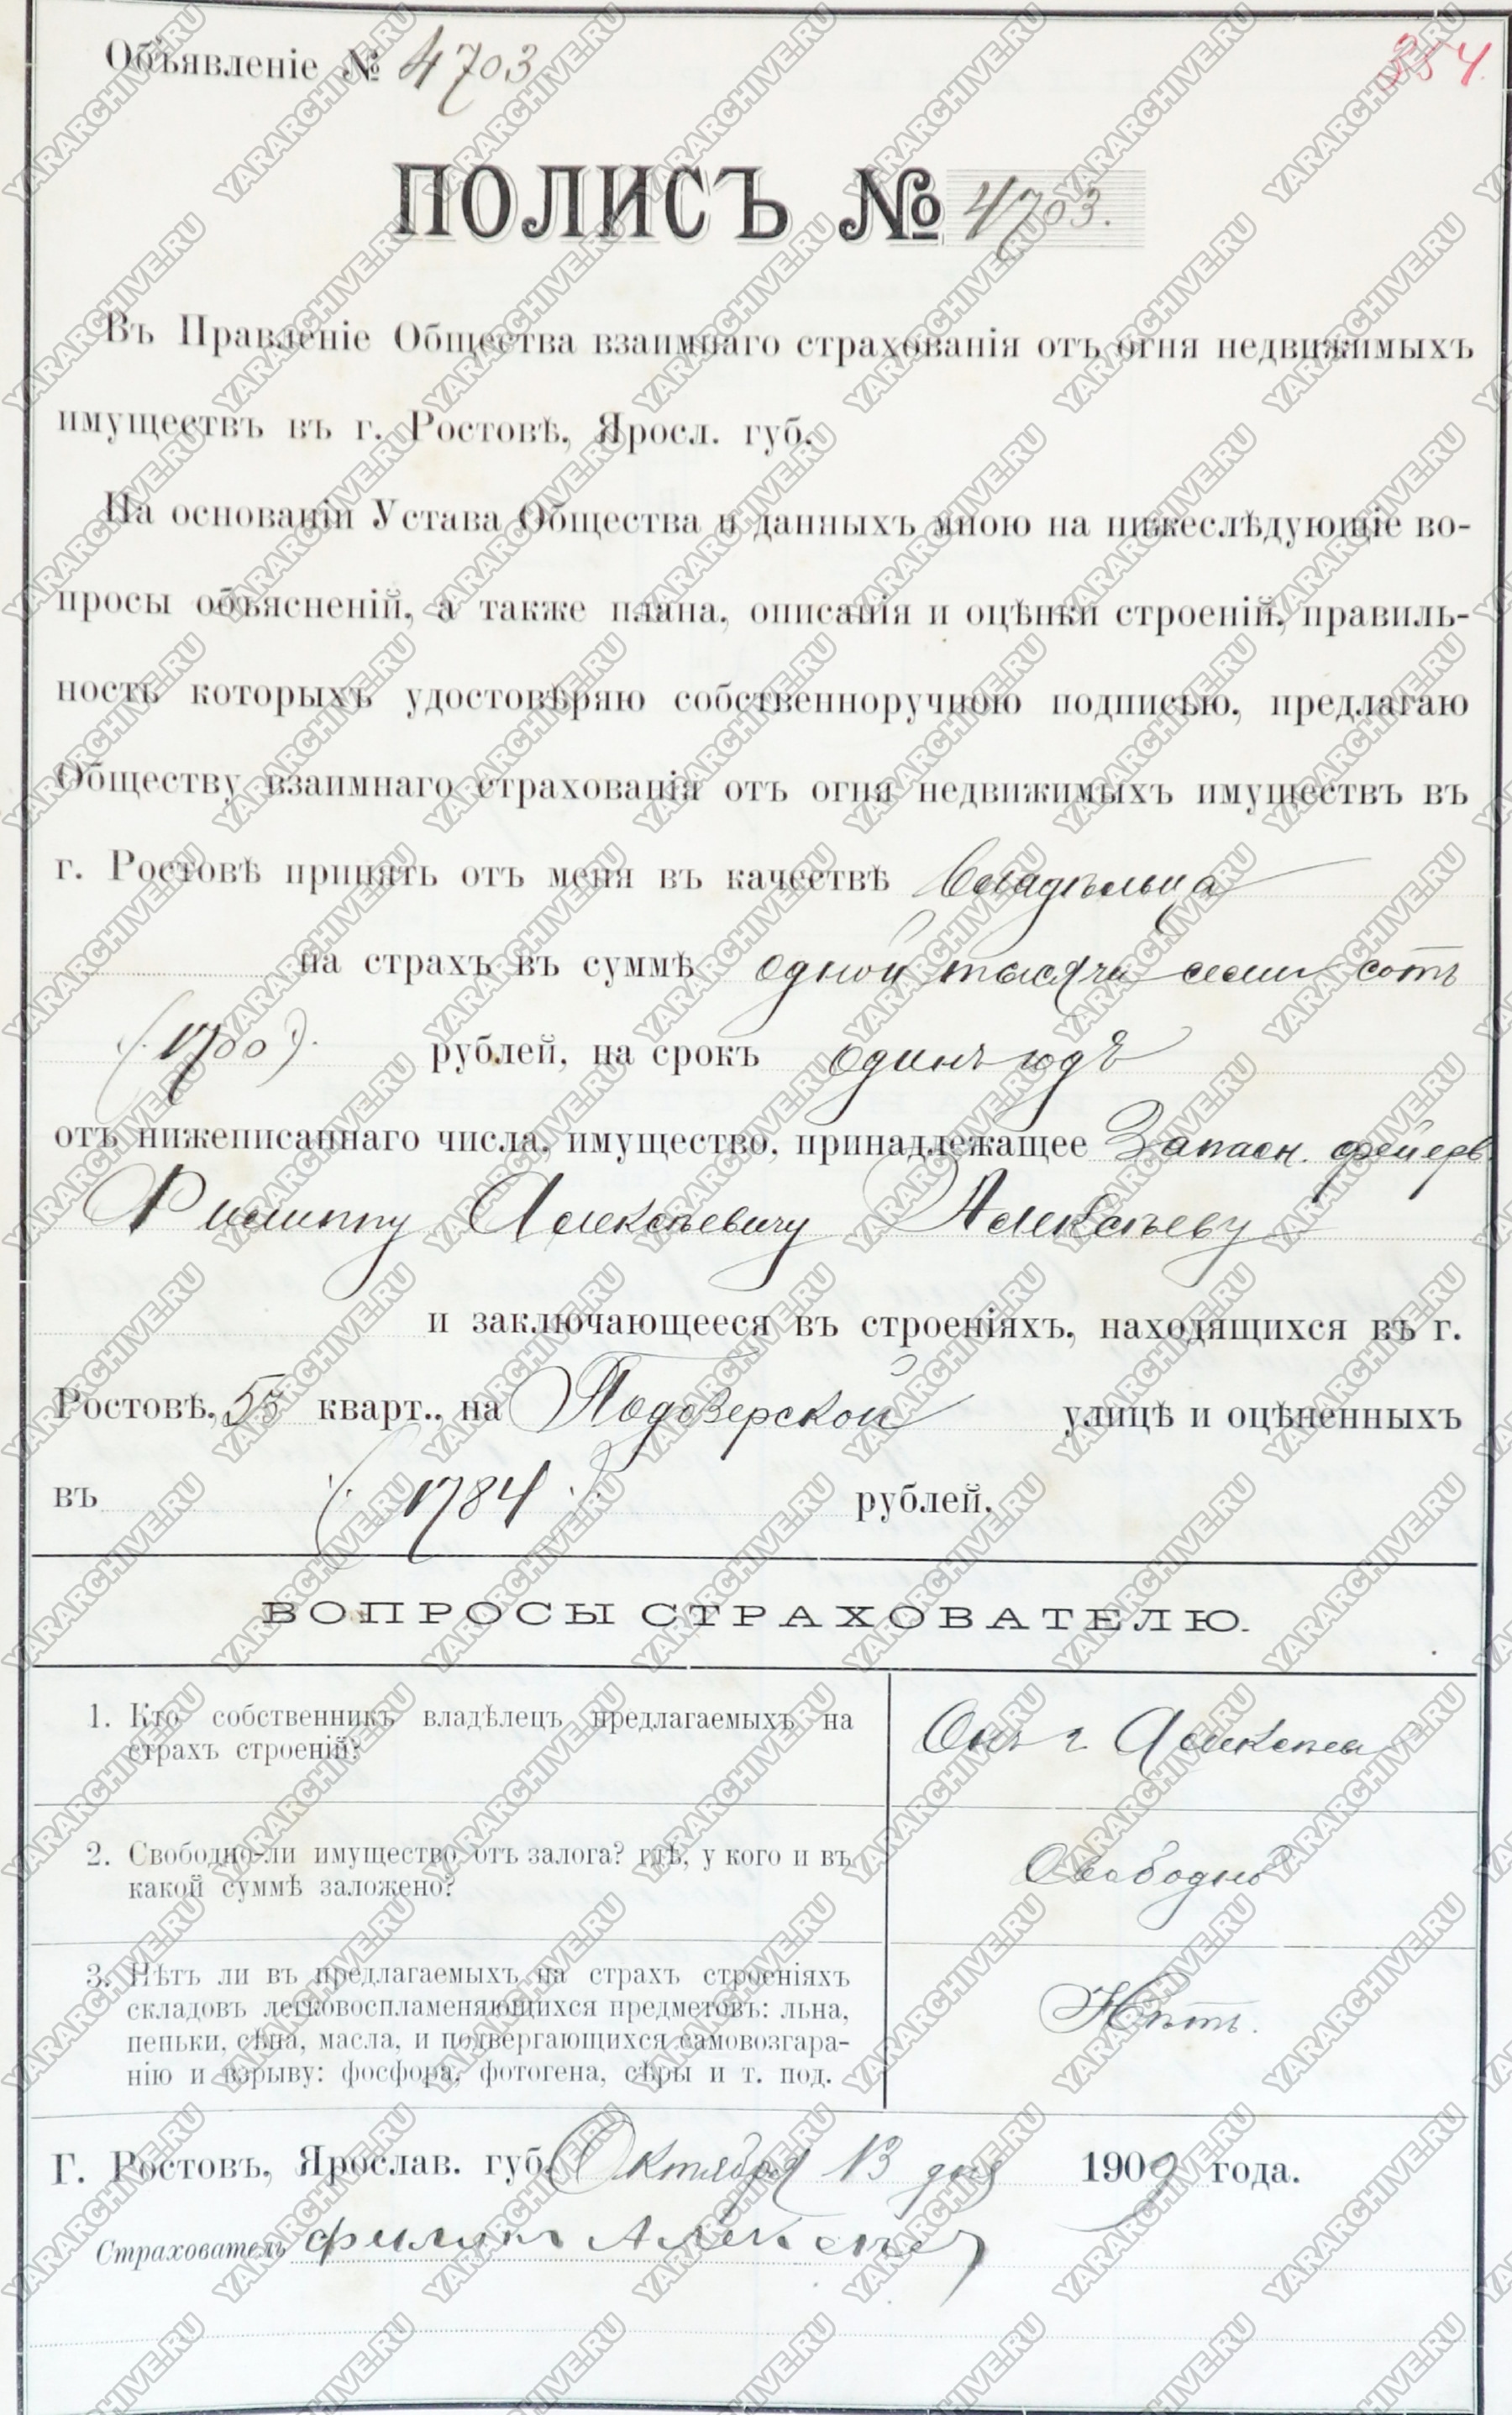 Объявленіе № 4703
354
ПОЛИСЪ № 4703.
Въ Правленіе Общества взаимнаго страхованія отъ огня недвижимыхъ
имуществъ въ г. Ростовѣ, Яросл. губ.
На основаніи Устава Общества и данныхъ мною на нижеслѣдующіе во-
просы объясненій, а также плана, описанія и оцѣнки строеній, правиль-
ность которыхъ удостовѣряю собственноручною подписью, предлагаю
Обществу взаимнаго страхованія отъ огня недвижимыхъ имуществъ въ
г. Ростовѣ принять отъ меня въ качествѣ Владѣльца
на страхъ въ суммѣ одной тысячи семи сотъ
(1700). рублей, на срокъ одинъ годъ
отъ нижеписаннаго числа, имущество, принадлежащее Запасн. фейерв.
Филиппу Алексѣевичу Алексѣеву
и заключающееся въ строеніяхъ, находящихся въ г.
Ростовѣ, 55 кварт., на Подозерской улицѣ и оцѣненныхъ
въ (1784) рублей.
ВОПРОСЫ СТРАХОВАТЕЛЮ.
1. Кто собственникъ владѣлецъ предлагаемыхъ на
страхъ строеній?
Онъ г Алексѣев
2. Свободно-ли имущество отъ залога? гдѣ, у кого и въ
какой суммѣ заложено?
Свободно
3. Нѣтъ ли въ предлагаемыхъ на страхъ строеніяхъ
складовъ легковоспламеняющихся предметовъ: льна,
пеньки, сѣна, масла, и подвергающихся самовозгара-
нію и взрыву: фосфора, фотогена, сѣры и т. под.
Нѣтъ.
Г. Ростовъ, Ярослав. губ. Октября 13 дня 1909 года.
Страхователь Филипъ Алексѣев